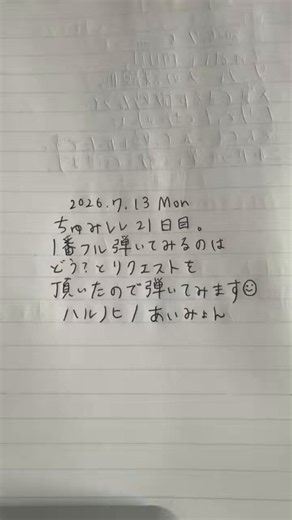 2026.7.13 Mon
ちゅみレレ21日目。
1番フル弾いてみるのは
どう?とリクエストを
頂いたので弾いてみます☺
ハルノヒ / あいみょん